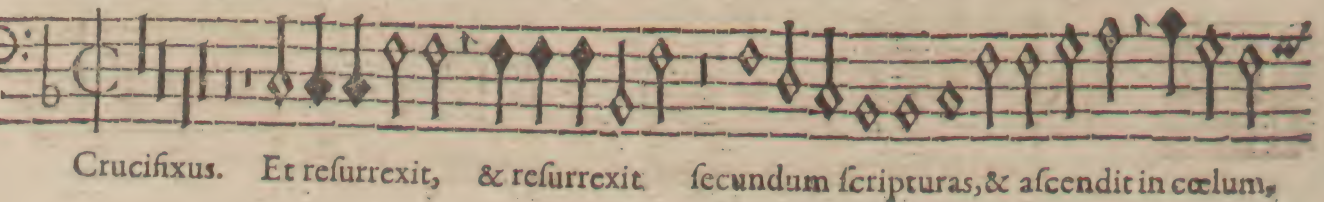 Crucifixus. Et reſurrexit, & reſurrexit ſecundum ſcripturas, & aſcendit in cœlum,